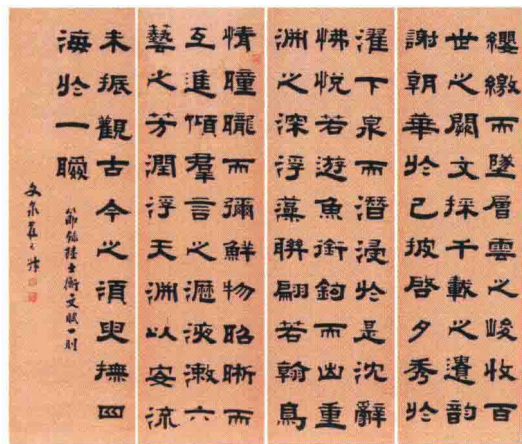 纓繳而墜層雲之峻收百
世之闕文採千載之遺韵
謝朝華於已披啓夕秀於
濯下泉而潛浸於是沈辭
怫悅若遊魚銜鈎而出重
淵之深浮藻聯翩若翰鳥
情曈曨而彌鮮物昭晣而
互進傾羣言之瀝液漱六
藝之芳潤浮天淵以安流
未振觀古今之須臾撫四
海於一瞬
節錄陸士衡文賦一則